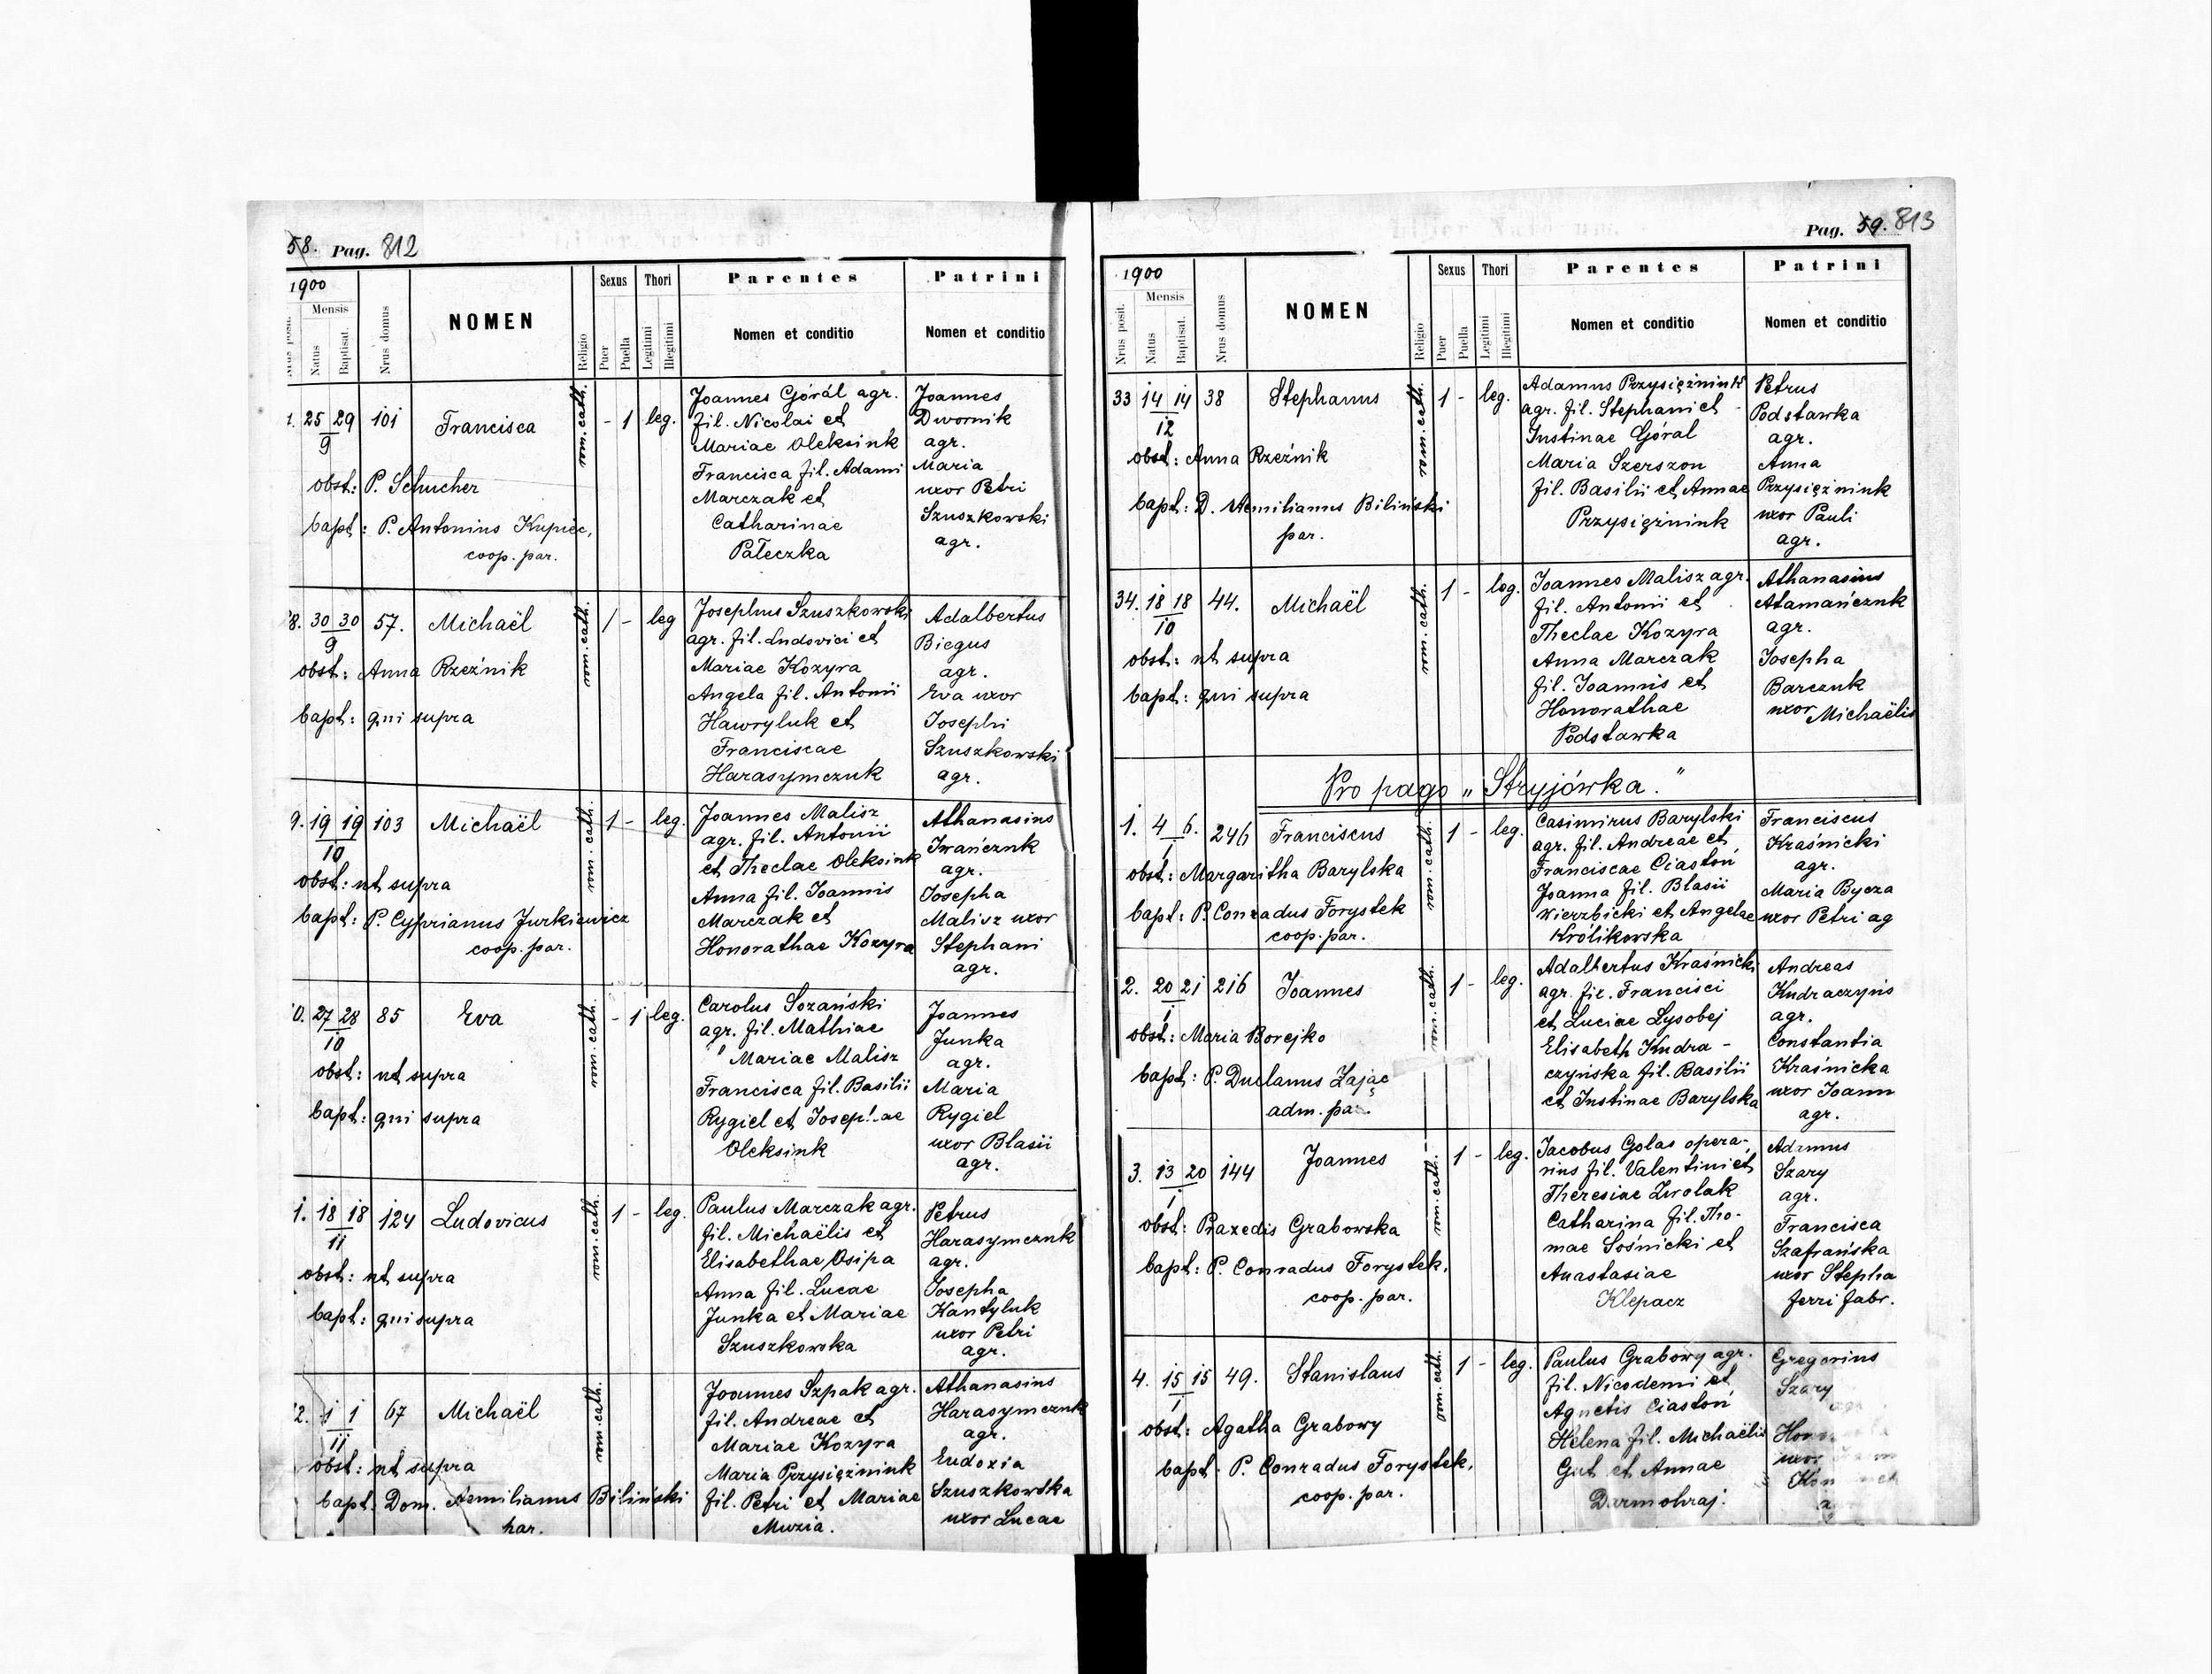 58. Pag. 812
1900
Mensis
Natus
Baptisat.
Nrus domus
NOMEN
Religio
Sexus
Puer
Puella
Thori
Legitimi
Illegitimi
Parentes
Nomen et conditio
Patrini
Nomen et conditio
25 29 101 Francisca
9
rom. cath.
- 1 leg.
obst: P. Schucher
bapt: P. Antonius Kupiec,
coop. par.
Joannes Góral agr.
fil. Nicolai et
Mariae Oleksiuk
Francisca fil. Adami
Marczak et
Catharinae
Pałeczka
Joannes
Dwornik
agr.
Maria
uxor Petri
Szuszkowski
agr.
8. 30 30 57. Michaël
9
rom. cath.
1 - leg
obst: Anna Rzeźnik
bapt: qui supra
Josephus Szuszkowski
agr. fil. Ludovici et
Mariae Kozyra
Angela fil. Antonii
Hawryluk et
Franciscae
Harasymczuk
Adalbertus
Biegus
agr.
Eva uxor
Josephi
Szuszkowski
agr.
9. 19 19 103 Michaël
10
rom. cath.
1 - leg.
obst: ut supra
bapt: P. Cyprianus Jurkiewicz
coop. par.
Joannes Malisz
agr. fil. Antonii
et Theclae Oleksiuk
Anna fil. Joannis
Marczak et
Honorathae Kozyra
Athanasius
Iwańczuk
agr.
Josepha
Malisz uxor
Stephani
agr.
0. 27 28 85 Eva
10
rom. cath.
- 1 leg.
obst: ut supra
bapt: qui supra
Carolus Sozański
agr. fil. Mathiae
Mariae Malisz
Francisca fil. Basilii
Rygiel et Josephae
Oleksiuk
Joannes
Junka
agr.
Maria
Rygiel
uxor Blasii
agr.
1. 18 18 124 Ludovicus
11
rom. cath.
1 - leg.
obst: ut supra
bapt: qui supra
Paulus Marczak agr.
fil. Michaëlis et
Elisabethae Osipa
Anna fil. Lucae
Junka et Mariae
Szuszkowska
Petrus
Harasymczuk
agr.
Josepha
Kantyluk
uxor Petri
agr.
2. 1 1 67 Michaël
11
rom. cath.
obst: ut supra
bapt: Dom. Aemilianus Biliński
par.
Joannes Szpak agr.
fil. Andreae et
Mariae Kozyra
Maria Przysiężniuk
fil. Petri et Mariae
Muzia.
Athanasius
Harasymczuk
agr.
Eudoxia
Szuszkowska
uxor Lucae
Pag. 59. 813
1900
Nrus posit.
Mensis
Natus
Baptisat.
Nrus domus
NOMEN
Religio
Sexus
Puer
Puella
Thori
Legitimi
Illegitimi
Parentes
Nomen et conditio
Patrini
Nomen et conditio
33 14 14 38 Stephanus
12
rom. cath.
1 - leg.
obst: Anna Rzeźnik
bapt: D. Aemilianus Biliński
par.
Adamus Przysiężniuk
agr. fil. Stephani et
Justinae Góral
Maria Szerszon
fil. Basilii et Annae
Przysiężniuk
Petrus
Podstawka
agr.
Anna
Przysiężniuk
uxor Pauli
agr.
34. 18 18 44. Michaël
10
rom. cath.
1 - leg.
obst: ut supra
bapt: qui supra
Joannes Malisz agr.
fil. Antonii et
Theclae Kozyra
Anna Marczak
fil. Joannis et
Honorathae
Podstawka
Athanasius
Atamańczuk
agr.
Josepha
Barczuk
uxor Michaëlis
Pro pago „Stryjówka."
1. 4 6. 246 Franciscus
1
rom. cath.
1 - leg.
obst: Margaritha Barylska
bapt: P. Conradus Forystek
coop. par.
Casimirus Barylski
agr. fil. Andreae et
Franciscae Ciastoń
Joanna fil. Blasii
Wierzbicki et Angelae
Królikowska
Franciscus
Kraśnicki
agr.
Maria Bycza
uxor Petri ag
2. 20 21 216 Joannes
1
rom. cath.
1 - leg.
obst: Maria Borejko
bapt: P. Duclanus Zając
adm. par.
Adalbertus Kraśnicki
agr. fil. Francisci
et Luciae Lysobej
Elisabeth Kudra-
czyńska fil. Basilii
et Justinae Barylska
Andreas
Kudraczyńs
agr.
Constantia
Kraśnicka
uxor Joann
agr.
3. 13 20 144 Joannes
1
rom. cath.
1 - leg.
obst: Praxedis Grabowska
bapt: P. Conradus Forystek.
coop. par.
Jacobus Golas opera-
rius fil. Valentini et
Theresiae Zwolak
Catharina fil. Tho-
mae Sośnicki et
Anastasiae
Klepacz
Adamus
Szary
agr.
Francisca
Szafrańska
uxor Stepha
ferri fabr.
4. 15 15 49. Stanislaus
1
rom. cath.
1 - leg.
obst: Agatha Grabowy
bapt: P. Conradus Forystek.
coop. par.
Paulus Grabowy agr.
fil. Nicodemi et
Agnetis Ciastoń
Helena fil. Michaëlis
Gut et Annae
Darmohraj.
Gregorius
Szary
uxor